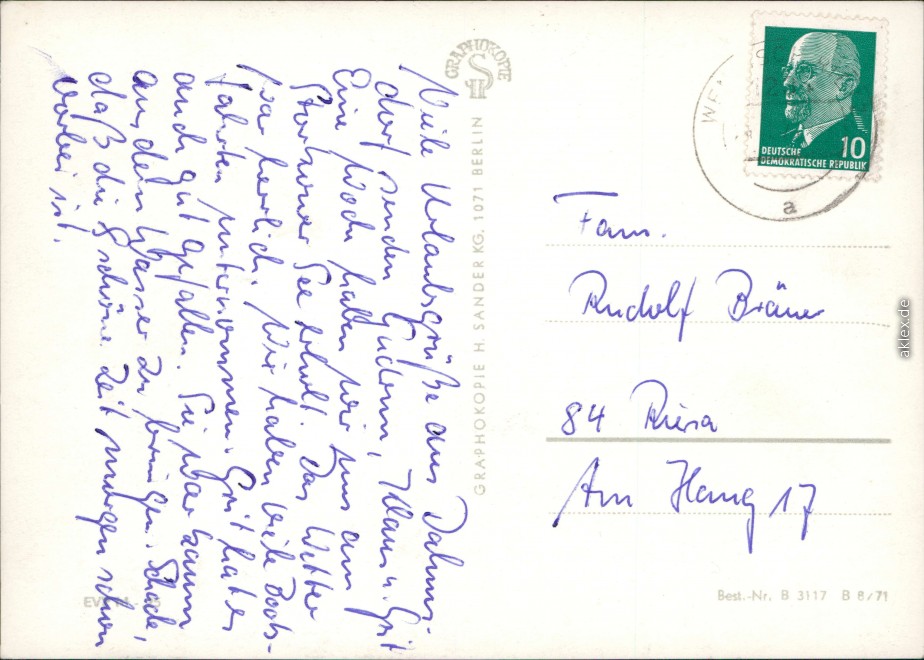 Viele Urlaubsgrüße aus Dahms-
dorf senden Gudrun, Klaus u. Grit
Eine Woche haben wir uns am
Storkower See erholt. Das Wetter
war herrlich. Wir haben viele Boots-
fahrten unternommen. Grit hat es
auch gut gefallen. Sie war kaum
aus dem Wasser zu bringen. Schade,
daß die schöne Zeit morgen schon
vorbei ist.
GRAPHOKOPIE
GRAPHOKOPIE H. SANDER KG, 1071 BERLIN
DEUTSCHE
DEMOKRATISCHE REPUBLIK
10
a
Fam.
Rudolf Bräuer
84 Riesa
Am Hang 17
Best.-Nr. B 3117 B 8/71
aklex.de